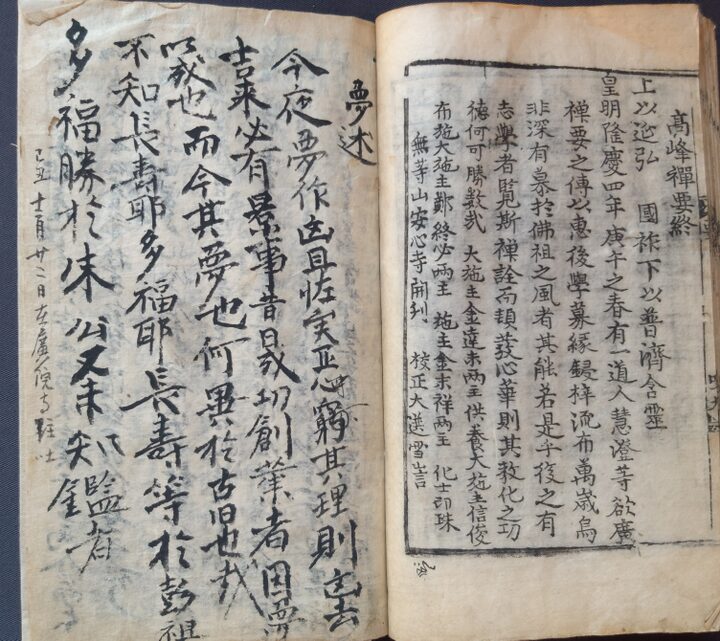 高峰禪要終
上以延弘　國祚下以普濟含靈
皇明隆慶四年庚午之春有一道人慧澄等欲廣
禪要之傳以惠後學募緣鋟梓流布萬歲烏
非深有慕於佛祖之風者其能若是乎後之有
志學者覧斯禪詮而頓發心華則其敎化之功
德何可勝數哉　大施主金達末兩主供養大施主信俊
布施大施主鄭終必兩主　施主金末祥兩主　化士印珠
無等山安心寺開刋　校正大選雪
夢述
今夜夢作凶且恠実惡心窮其理則
來必有景事昔晟功創業者因夢
以成也而今其夢也何異於古旧也哉
不知長壽耶多福耶長壽等於彭祖
多福勝於朱公又未知鑑者
己丑十一月廿二日在